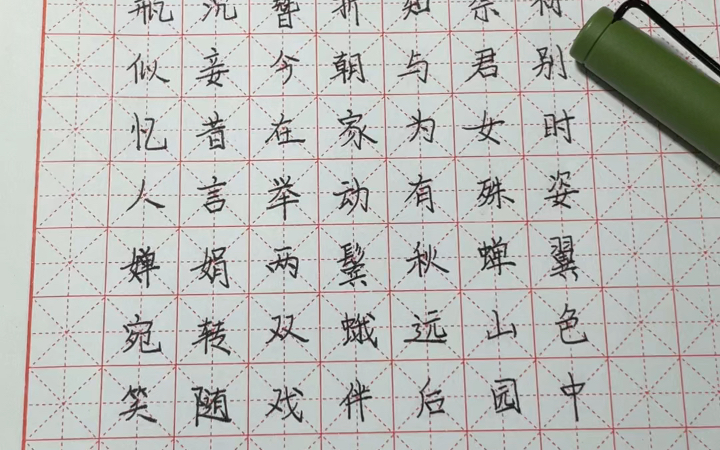 瓶沉簪折知奈何
似妾今朝与君别
忆昔在家为女时
人言举动有殊姿
婵娟两鬓秋蝉翼
宛转双蛾远山色
笑随戏伴后园中